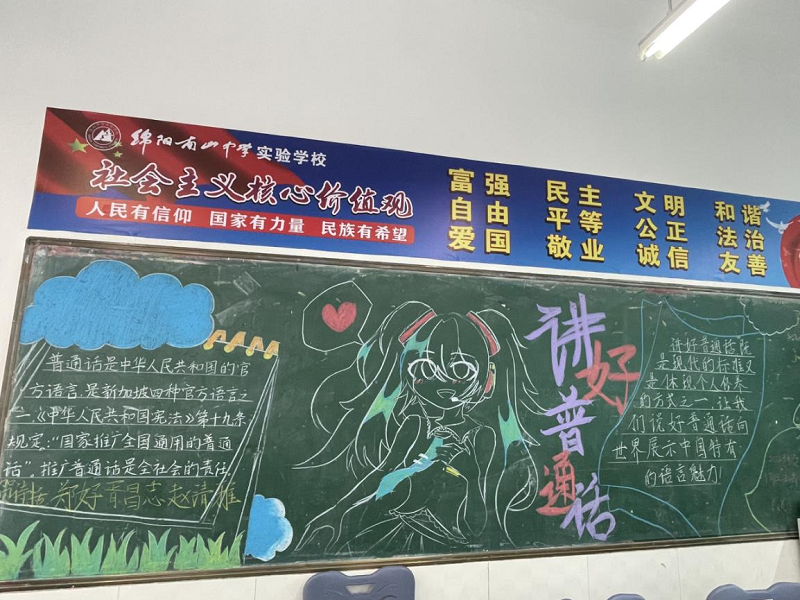 绵阳南山中学实验学校
社会主义核心价值观
人民有信仰 国家有力量 民族有希望
富强 民主 文明 和谐
自由 平等 公正 法治
爱国 敬业 诚信 友善
普通话是中华人民共和国的官
方语言,是新加坡四种官方语言之
一《中华人民共和国宪法》第十九条
规定:“国家推广全国通用的普通
话”,推广普通话是全社会的责任
讲好普通话
讲好普通话既
是现代的标准又
是体现个人修养
的方式之一 让我
们说好普通话向
世界展示中国特有
的语言魅力